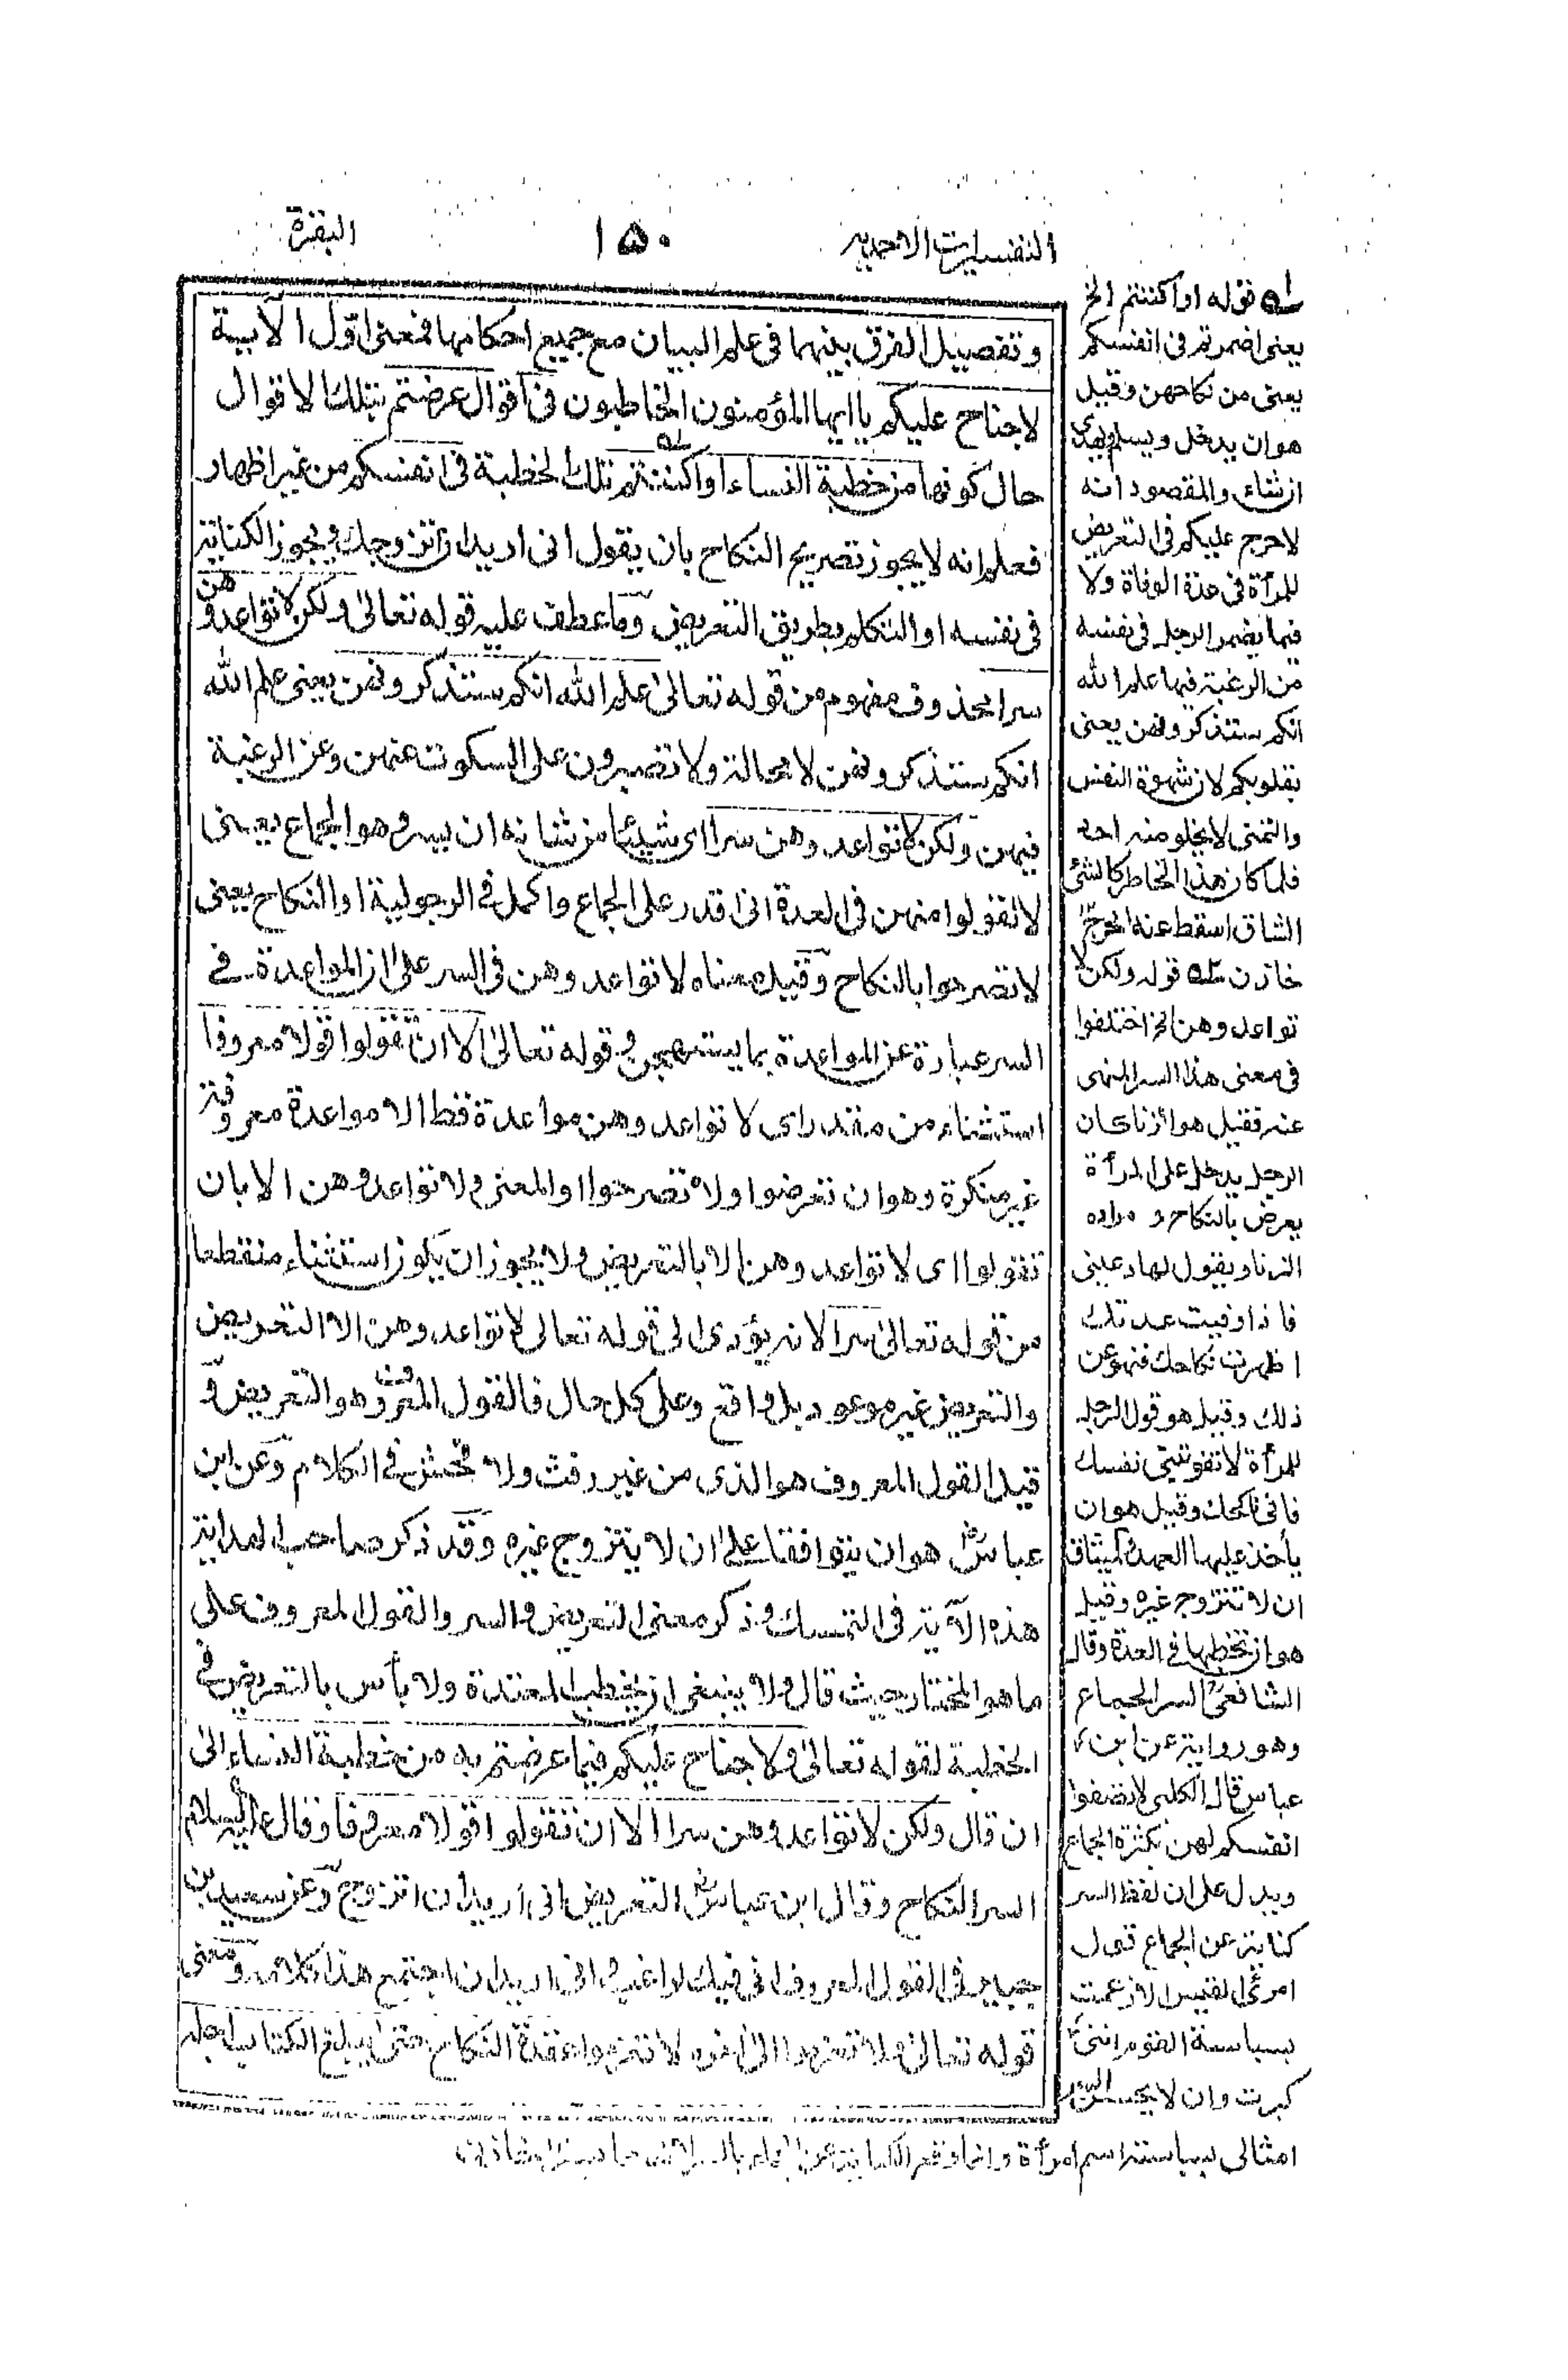 التفسيرات الاحمدية
١٥٠
البقرة
وتفصيل الفرق بينهما فى علم البيان مع جميع احكامها فمعنى اول الآية
لا جناح عليكم يا ايها المؤمنون المخاطبون فى اقوال عرضتم بتلك الاقوال
حال كونها من خطبة النساء او اكننتم تلك الخطبة فى انفسكم من غير اظهار
فعلم انه لا يجوز تصريح النكاح بان يقول انى اريد ان اتزوجك ويجوز الكناية
فى نفسه او التكلم بطريق التعريض وما عطف عليه قوله تعالى ولكن لا تواعدوهن
سرا محذوف مفهوم من قوله تعالى علم الله انكم ستذكرونهن يعنى علم الله
انكم ستذكرونهن لا محالة ولا تصبرون على السكوت عنهن وعن الرغبة
فيهن ولكن لا تواعدوهن سرا اى شيئا من شانه ان يسر وهو الجماع يعنى
لا تقولوا منهن فى العدة انى اقدر على الجماع واكمل فى الرجولية او النكاح يعنى
لا تصرحوا بالنكاح وقيل معناه لا تواعدوهن فى السر على ان المواعدة فى
السر عبارة عن المواعدة بما يستهجن وقوله تعالى الا ان تقولوا قولا معروفا
استثناء من مقدر اى لا تواعدوهن مواعدة قط الا مواعدة معروفة
غير منكرة وهو ان تعرضوا ولا تصرحوا والمعنى ولا تواعدوهن الا بان
تقولوا اى لا تواعدوهن الا بالتعريض ولا يجوز ان يكون استثناء منقطعا
من قوله تعالى سرا لانه يؤدى الى قوله تعالى لا تواعدوهن الا التعريض
والتعريض غير موعود بل واقع وعلى كل حال فالقول المعروف هو التعريض و
قيل القول المعروف هو الذى من غير رفث ولا فحش فى الكلام وعن ابن
عباس هو ان يتوافقا على ان لا يتزوج غيره وقد ذكر صاحب الهداية
هذه الآية فى التمسك وذكر معنى التعريض والسر والقول المعروف على
ما هو المختار حيث قال ولا ينبغى ان يخطب المعتدة ولا بأس بالتعريض فى
الخطبة لقوله تعالى ولا جناح عليكم فيما عرضتم به من خطبة النساء الى
ان قال ولكن لا تواعدوهن سرا الا ان تقولوا قولا معروفا وقال عليه السلام
السر النكاح وقال ابن عباس التعريض انى أريد ان اتزوج وعن سعيد بن
جبير فى القول المعروف انى فيك لراغب وانى اريد ان اجتمع هذا كلامه ومعنى
قوله تعالى ولا تعزموا الى اخره لا تعزموا عقدة النكاح حتى يبلغ الكتاب اجله
له قوله او اكننتم الخ
يعنى اضمرتم فى انفسكم
يعنى من نكاحهن وقيل
هو ان يدخل ويسلم ويهدى
ان شاء والمقصود انه
لا حرج عليكم فى التعريض
للمرأة فى عدة الوفاة ولا
فيما يضمر الرجل فى نفسه
من الرغبة فيها علم الله
انكم ستذكرونهن يعنى
بقلوبكم لان شهوة النفس
والتمنى لا يخلو منه احد
فلما كان هذا الخاطر كالشئ
الشاق اسقط عنه الحرج
خازن قوله ولكن لا
تواعدوهن الخ اختلفوا
فى معنى هذا السر المنهى
عنه فقيل هو الزنا كان
الرجل يدخل على المرأة
يعرض بالنكاح و مراده
الزنا ويقول لها دعينى
فاذا وفيت عدتك
اظهرت نكاحك فنهو عن
ذلك وقيل هو قول الرجل
للمرأة لا تفوتينى نفسك
فانى ناكحك وقيل هو ان
يأخذ عليها العهد والميثاق
ان لا تتزوج غيره وقيل
هو ان يخطبها فى العدة وقال
الشافعى السر الجماع
وهو رواية عن ابن
عباس قال الكلبى لا تصفوا
انفسكم لهن بكثرة الجماع
ويدل على ان لفظ السر
كناية عن الجماع قول
امرئ القيس الا زعمت
بسباسة القوم اننى
كبرت وان لا يحسن السر
امثالى بسباسة اسم امرأة وانما وقع الكناية عن الجماع بالسر